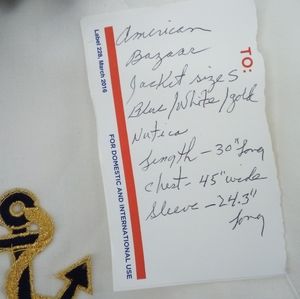 American
Bazaar
Jacket size S
Blue/White/gold
Nutica
Length - 30" long
Chest - 45" wide
Sleeve - 24.3"
long
TO:
Label 228, March 2016
FOR DOMESTIC AND INTERNATIONAL USE